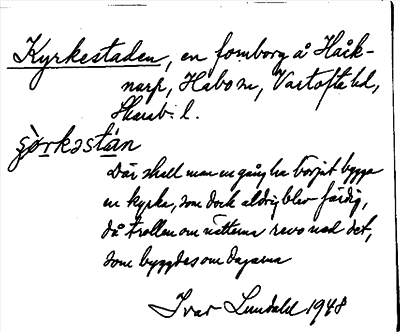 Kyrkestaden, en fornborg å Håk-
narp, Habo sn, Vartofta hd,
Skarab. l.
ʂò̱rkəstàn
Där skall man en gång ha börjat bygga
en kyrka, som dock aldrig blev färdig,
då trollen om nätterna revo ned det,
som byggdes om dagarna
Ivar Lundahl 1948